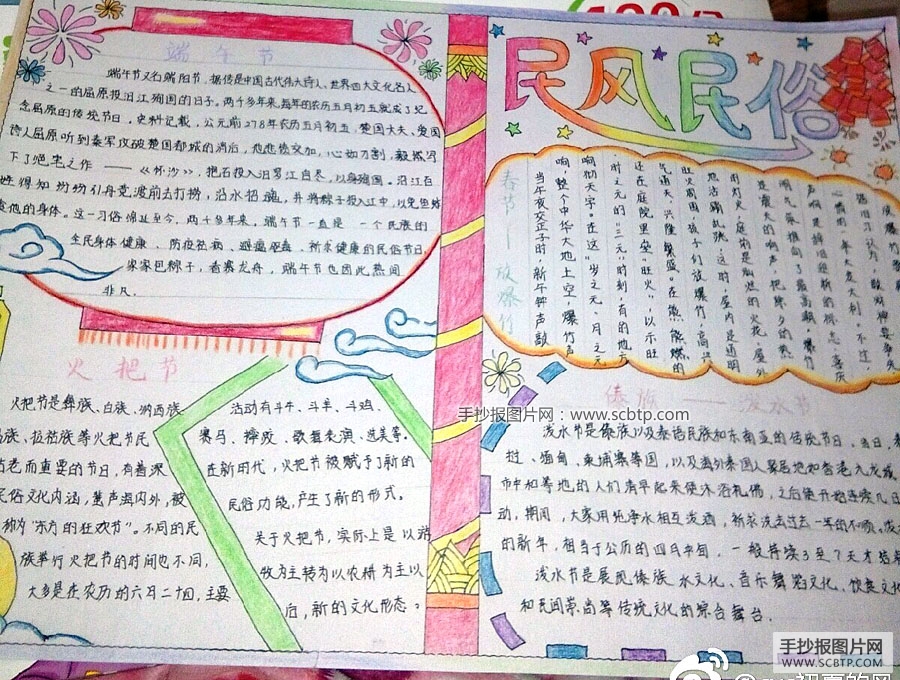 端午节
端午节又名端阳节，据传是中国古代伟大诗人、世界四大文化名人
之一的屈原投汨江殉国的日子。两千多年来，每年的农历五月初五就成了纪
念屈原的传统节日，史料记载，公元前278年农历五月初五，楚国大夫、爱国
诗人屈原听到秦军攻破楚国都城的消后，他悲愤交加，心如刀割，毅然写
下了绝笔之作——《怀沙》，把石投入汨罗江自尽，以身殉国。沿江百
姓得知纷纷引舟竞渡前去打捞，沿水招魂，并将粽子投入江中，以免鱼虾
他的身体。这一习俗绵延至今，两千多年来，端午节一直是一个民族的
全民身体健康、防疫祛病、避瘟驱毒、祈求健康的民俗节日。
家家包粽子，香赛龙舟，端午节也因此热闹
非凡.
火把节
火把节是彝族、白族、纳西族
族、拉祜族等火把节民
古老而重要的节日，有着深
民俗文化内涵，蕙声海内外，被
称为“东方的狂欢节”。不同的民
族举行火把节的时间也不同，
大多是在农历的六月二十四，主要
活动有斗牛、斗羊、斗鸡、
赛马、摔跤、歌舞表演、选美等。
在新时代，火把节被赋予了新的
民俗功能，产生了新的形式。
关于火把节，实际上是以游
牧为主转为以农耕为主以
后，新的文化形态。
民风民俗
春节—放爆竹
当午夜交正子时，新年钟声敲
响，整个中华大地上空，爆竹声
响彻天宇。在这“岁之元、月之元
时之元的“三元”时刻，有的地方
还在庭院里垒“旺火”，以示旺
气通天，兴隆繁盛。在熊熊燃烧的
旺火周围，孩子们放爆竹，高兴
地活蹦乱跳，这时，屋内是通明
的灯火，庭前是灿烂的火花，屋外
是震天的响声，把除夕的热
闹气氛推向了最高潮。爆竹
声响是辞旧迎新的标志、喜庆
傣族——泼水节
泼水节是傣族以及泰语民族和东南亚的传统节日，当日，泰
挝、缅甸、柬埔寨等国，以及海外泰国人聚居地和香港九龙城
市中和等地的人们清早起来便沐浴礼佛，之后便开始连续几日
动，期间，大家用纯净水相互泼洒，祈求洗去过去一年的不顺。泼
的新年，相当于公历的四月中旬，一般持续3至7天才结
泼水节是展现傣族水文化、音乐舞蹈文化、饮食文化
和民间崇尚等传统文化的综合舞台.
手抄报图片网：www.scbtp.com
手抄报图片网
WWW.SCBTP.COM